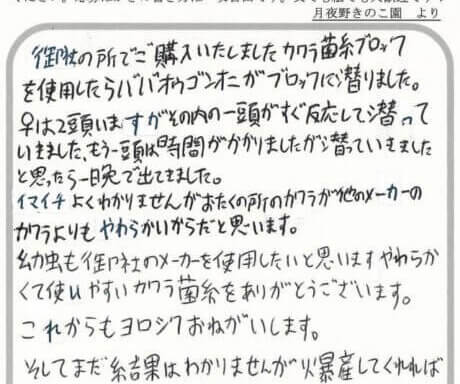 月夜野きのこ園　より
御社の所でご購入いたしましたカワラ菌糸ブロック
を使用したらババオウゴンオニがブロックに潜りました。
♀は2頭いますがその内の一頭がすぐ反応して潜って
いきました、もう一頭は時間がかかりましたが潜っていきました
と思ったら一晩で出てました。
イマイチよくわかりませんがおたくの所のカワラが他のメーカーの
カワラよりもやわらかいからだと思います。
幼虫も御社のメーカーを使用したいと思いますやわらか
くて使いやすいカワラ菌糸をありがとうございます。
これからもヨロシクおねがいします。
そしてまだ結果はわかりませんが爆産してくれれば